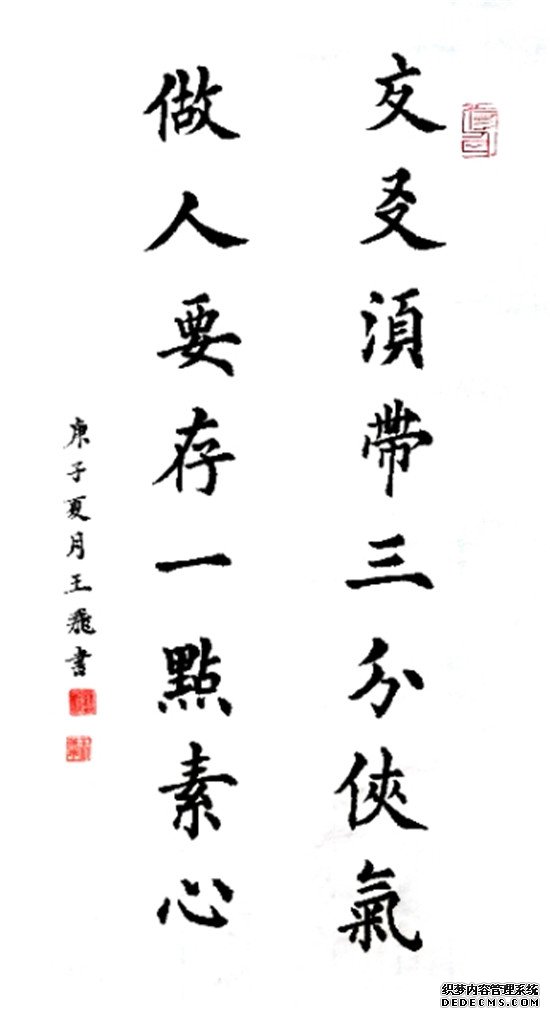 交友湏帶三分俠氣
做人要存一點素心
庚子夏月王飛書
织梦内容管理系统
DEDECMS.COM